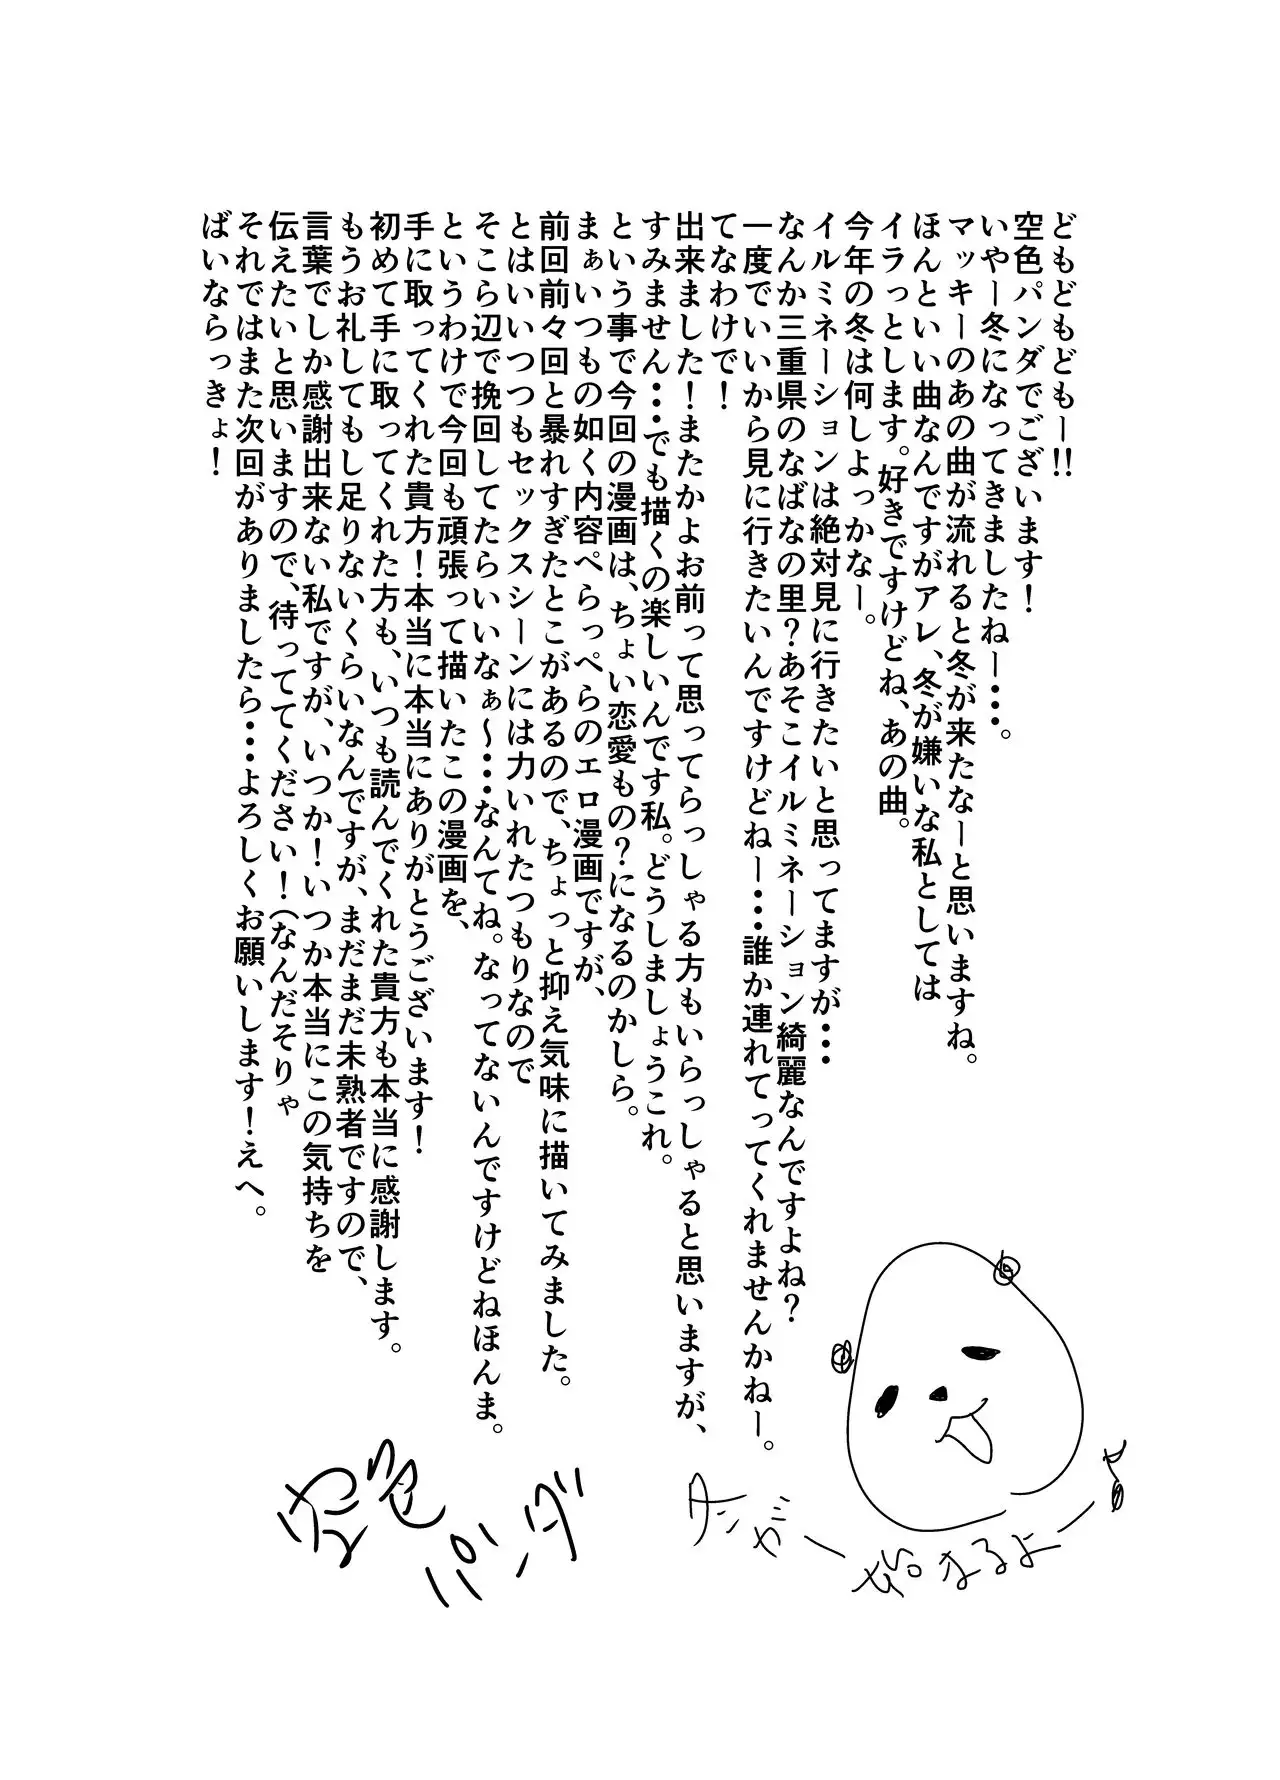 どもどもどもー!!
空色パンダでございます！
いやー冬になってきましたねー・・・。
マッキーのあの曲が流れると冬が来たなーと思いますね。
ほんといい曲なんですがアレ、冬が嫌いな私としては
イラっとします。好きですけどね、あの曲。
今年の冬は何しよっかなー。
イルミネーションは絶対見に行きたいと思ってますが・・・
なんか三重県のなばなの里？あそこイルミネーション綺麗なんですよね？
一度でいいから見に行きたいんですけどねー・・・誰か連れてってくれませんかねー。
てなわけで！
出来ました！またかよお前って思ってらっしゃる方もいらっしゃると思いますが、
すみません・・・でも描くの楽しいんです私。どうしましょうこれ。
という事で今回の漫画は、ちょい恋愛もの？になるのかしら。
まぁいつもの如く内容ぺらっぺらのエロ漫画ですが、
前回前々回と暴れすぎたとこがあるので、ちょっと抑え気味に描いてみました。
とはいいつつもセックスシーンには力いれたつもりなので
そこら辺で挽回してたらいいなぁ～・・・なんてね。なってないんですけどねほんま。
というわけで今回も頑張って描いたこの漫画を、
手に取ってくれた貴方！本当に本当にありがとうございます！
初めて手に取ってくれた方も、いつも読んでくれた貴方も本当に感謝します。
もうお礼してもし足りないくらいなんですが、まだまだ未熟者ですので、
言葉でしか感謝出来ない私ですが、いつか！いつか本当にこの気持ちを
伝えたいと思いますので、待っててください！（なんだそりゃ
それではまた次回がありましたら・・・よろしくお願いします！えへ。
ばいならっきょ！
空色
パンダ